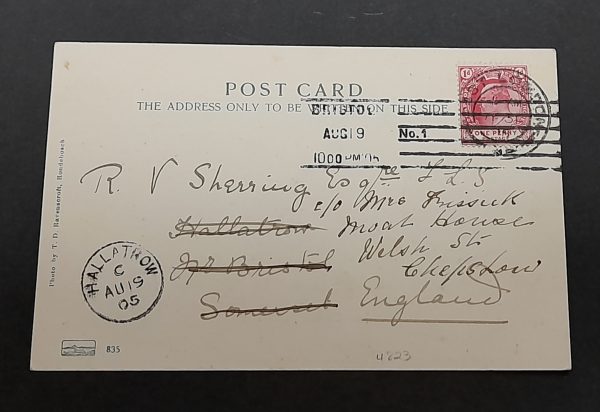 POST CARD
THE ADDRESS ONLY TO BE WRITTEN ON THIS SIDE
1d 1d
ONE PENNY
BRISTOL
AUG 19
No. 1
10 00 PM '05
R. V Sherring Esqre
c/o Mrs
Hallatrow
Moat House
Nr Bristol
Welsh St
Somerset
Chepstow
England
HALLATROW
C
AU 19
05
Photo by T. D. Ravenscroft, Rondebosch
835